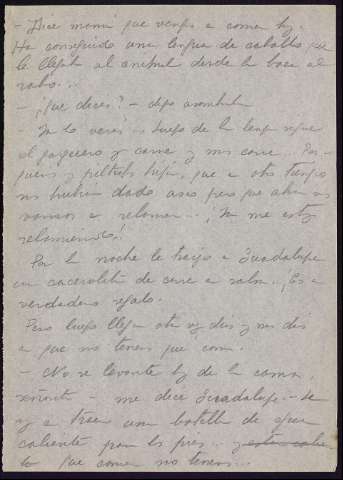 - Dice mamá que vengas a comer hoy.
Ha conseguido una lengua de caballo que
le llegaba al animal desde la boca al
rabo...
- ¿Qué dices? - digo asombrada
- Ya lo verás... luego de la lengua sigue
el garguero y carne y más carne...
que a otro tiempo
nos hubiera dado asco pero que ahora nos
vamos a relamer... ¡Ya me estoy
relamiendo!
Por la noche le traigo a Guadalupe
una cacerolita de carne en salsa. ¡Es un
verdadero regalo.
Pero luego llegan otra vez días y más días
en que no tenemos que comer.
- No se levante hoy de la cama,
señorita - me dice Guadalupe - le
voy a traer una botella de agua
caliente para los pies...
lo que comer no tenemos...